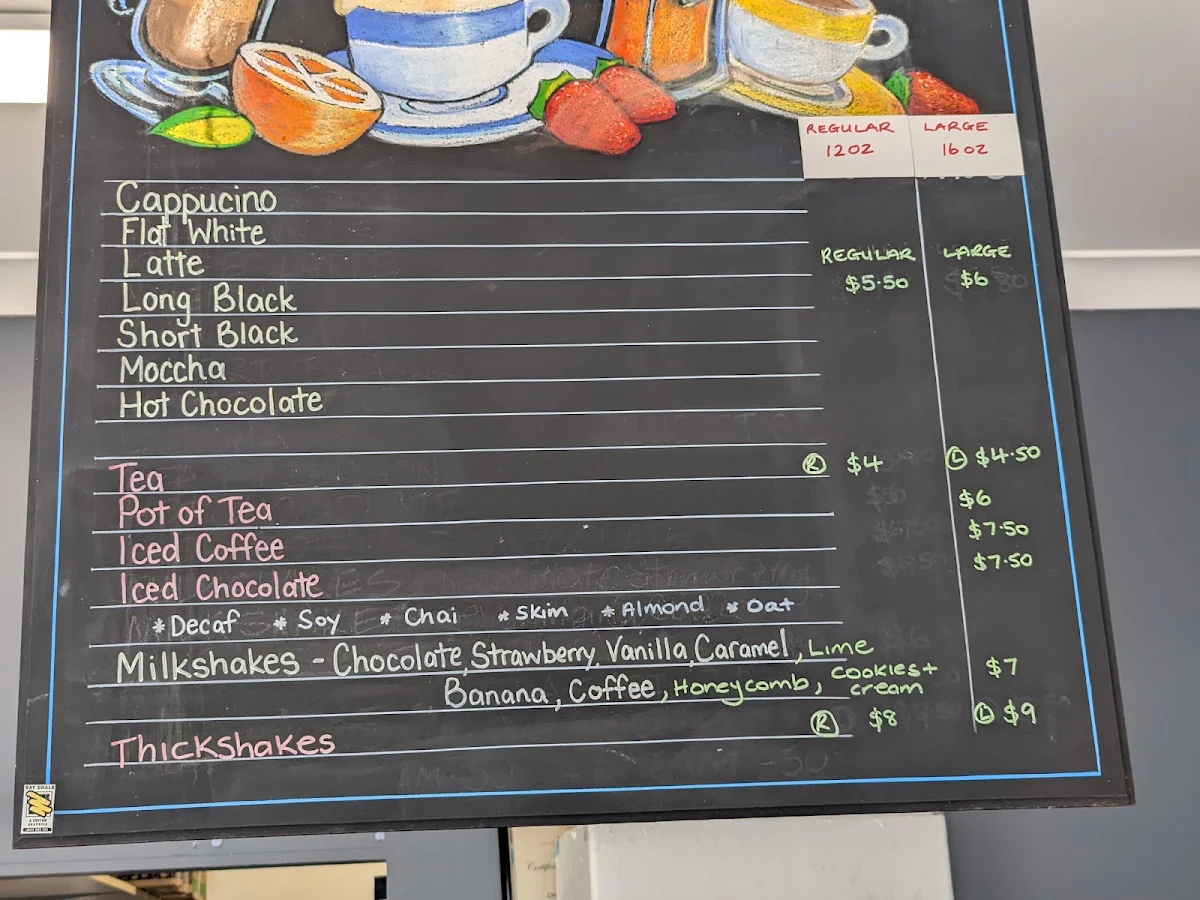 REGULAR LARGE
12 OZ 16 OZ
Cappucino
Flat White
Latte REGULAR LARGE
Long Black $5.50 $6
Short Black
Moccha
Hot Chocolate
Tea R $4 L $4.50
Pot of Tea $6
Iced Coffee $7.50
Iced Chocolate $7.50
*Decaf *Soy *Chai *Skim *Almond *Oat
Milkshakes - Chocolate, Strawberry, Vanilla, Caramel, Lime $7
Banana, Coffee, Honeycomb, Cookies + cream
Thickshakes R $8 L $9